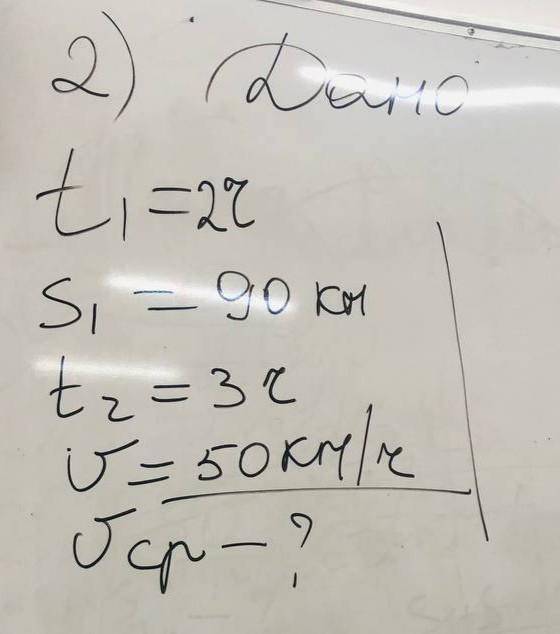 2) Дано
t₁ = 2ч
S₁ = 90 км
t₂ = 3 ч
v = 50 км/ч
vср - ?